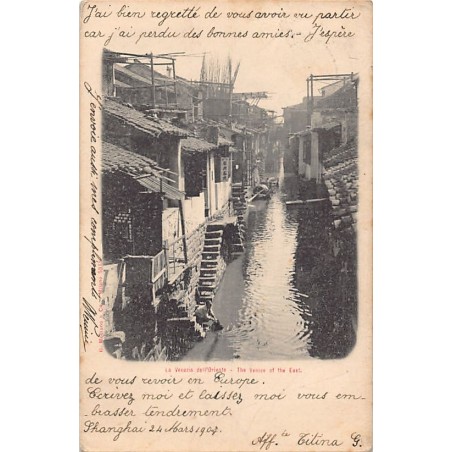 J'ai bien regretté de vous avoir vu partir
car j'ai perdu des bonnes amies. - J'espère
La Venezia dell'Oriente - The Venice of the East.
de vous revoir en Europe.
Ecrivez moi et laissez moi vous em-
brasser tendrement.
Shanghai 24 Mars 1904.
Aff.te Titina G.
J'envoie aussi mes compliments